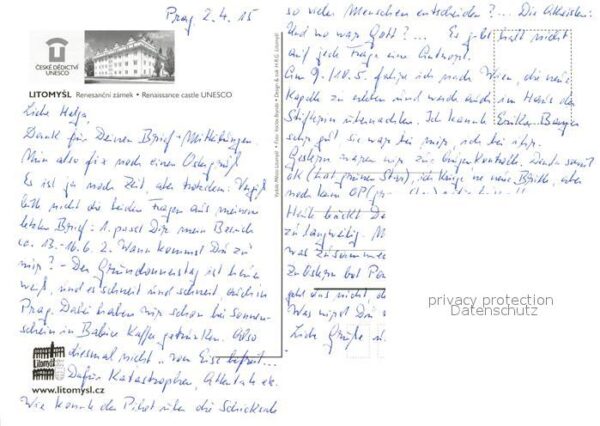 Prag 2.4.15
ČESKÉ DĚDICTVÍ
UNESCO
LITOMYŠL Renesanční zámek • Renaissance castle UNESCO
Liebe Helga,
Dank für Deinen Brief + Mitteilungen.
Nun also fix noch einen Ostergruß
Es ist ja noch Zeit, aber trotzdem: Vergiß
bitte nicht die beiden Fragen aus meinem
letzten Brief: 1. passt Dir mein Besuch
ca. 13.-16.6. 2. Wann kommst Du zu
mir? - Der Gründonnerstag ist heuer
weiß, und es schneit und schneit, auch in
Prag. Dabei haben wir schon bei Sonnen-
schein in Babice Kaffee getrunken. Also
diesmal nicht "vom Eise befreit..."
Dafür Katastrophen, Attentate etc.
Wie konnte der Pilot über die Schicksale
Litomyšl
www.litomysl.cz
so vieler Menschen entscheiden?... Die Atheisten:
Und wo war Gott?... Es gibt halt nicht
auf jede Frage eine Antwort.
Am 9./10.5. fahre ich nach Wien, die neue
Kapelle zu erleben und werde auch im Haus der
Stifterin übernachten. Ich kannte Erika
sehr gut sie war bei mir, ich bei ihr.
Gestern waren wir zur Augenkontrolle.
ok (hat grünen Star), ich kriege ne neue Brille, aber
noch keine OP
Heute bäckt
zu langweilig.
was zusammen
Zu Ostern bei
geht uns nicht,
Was wirst Du
Liebe Grüße
privacy protection
Datenschutz